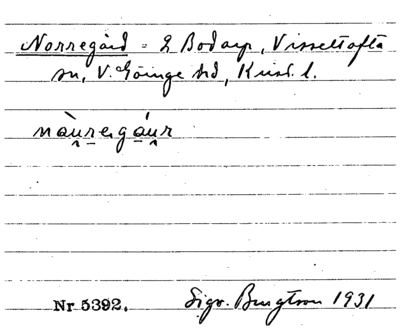 Norregård = 2 Bodarp, Visseltofta
sn, V. Göinge hd, Krist. l.
nàu̯re̱gáu̯r
Nr 5392. Sigv. Bengtson 1931